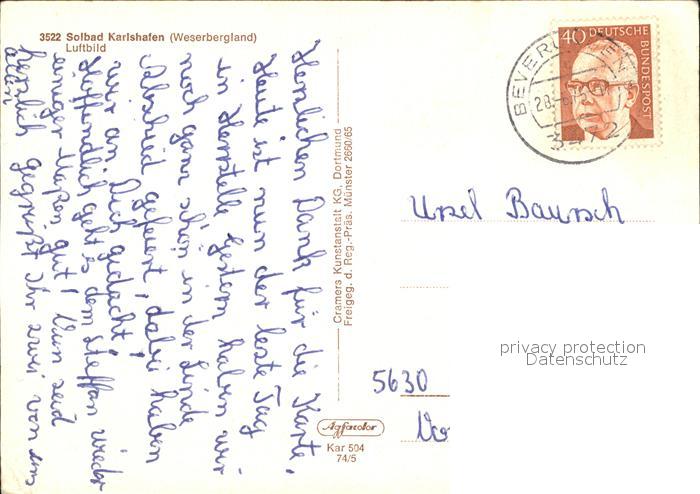 3522 Solbad Karlshafen (Weserbergland)
Luftbild
Herzlichen Dank für die Karte,
Heute ist nun der letzte Tag
in Herstelle. Gestern haben wir
noch ganz schön in der Linde
Abschied gefeiert, dabei haben
wir an Dich gedacht!
Hoffendlich geht es dem Steffan wieder
einiger Maßen gut! Nun seid
herzlich gegrüßt Ihr zwei von uns
allen
Cramers Kunstanstalt KG. Dortmund
Freigeg. d. Reg.-Präs. Münster 2660/65
Agfacolor
Kar 504
74/5
BEVERU
28.
3472
40 DEUTSCHE
BUNDESPOST
Ursel Baursch
privacy protection
Datenschutz
5630